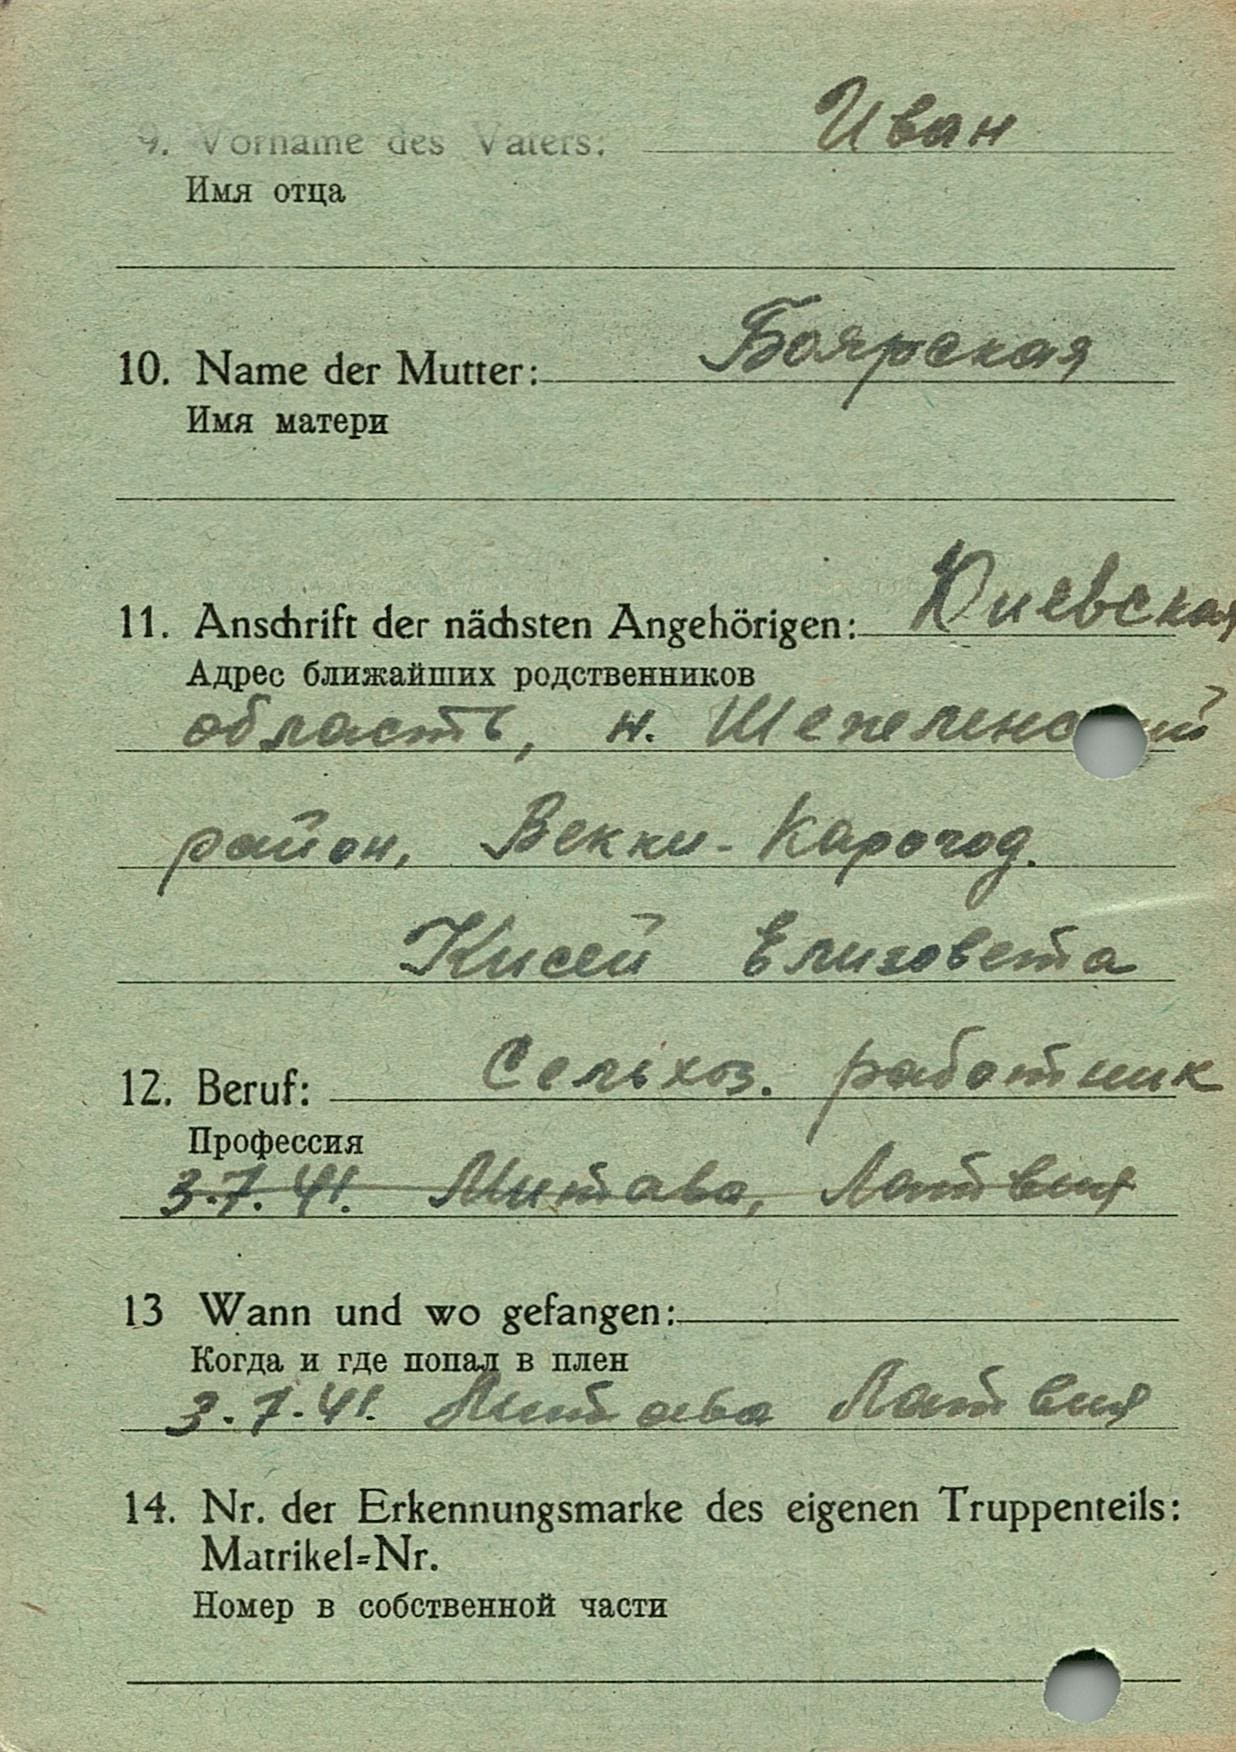 9. Vorname des Vaters: Иван
Имя отца
10. Name der Mutter: Боярская
Имя матери
11. Anschrift der nächsten Angehörigen: Киевская
Адрес ближайших родственников
область, н. Шепеленский
район, Векки-Карогод.
Кисей Елизовета
12. Beruf: Сельхоз. работник
Профессия
3.7.41. Митава, Латвия
13 Wann und wo gefangen:
Когда и где попал в плен
3.7.41. Митава Латвия
14. Nr. der Erkennungsmarke des eigenen Truppenteils:
Matrikel=Nr.
Номер в собственной части